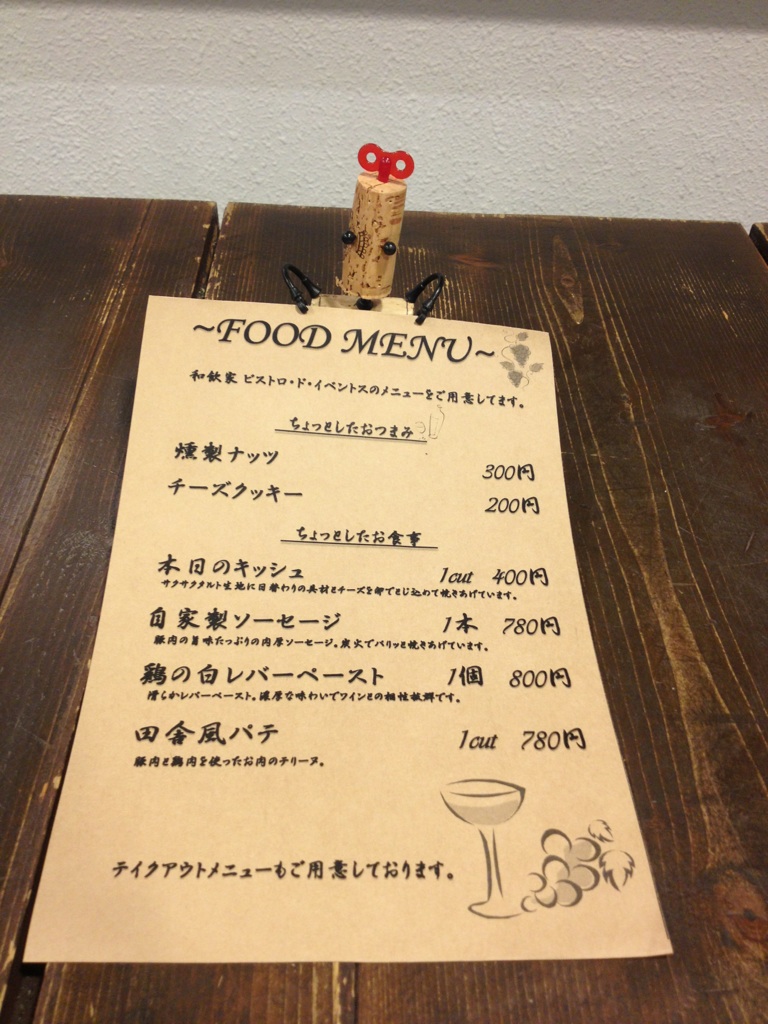 ~FOOD MENU~
和飲家 ビストロ・ド・イベントスのメニューをご用意してます。
ちょっとしたおつまみ
燻製ナッツ 300円
チーズクッキー 200円
ちょっとしたお食事
本日のキッシュ 1cut 400円
サクサクタルト生地に日替わりの具材とチーズを卵でとじ込めて焼きあげています。
自家製ソーセージ 1本 780円
豚肉の旨味たっぷりの肉厚ソーセージ。炭火でパリッと焼きあげています。
鶏の白レバーペースト 1個 800円
滑らかレバーペースト。濃厚な味わいでワインとの相性抜群です。
田舎風パテ 1cut 780円
豚肉と鶏肉を使ったお肉のテリーヌ。
テイクアウトメニューもご用意しております。